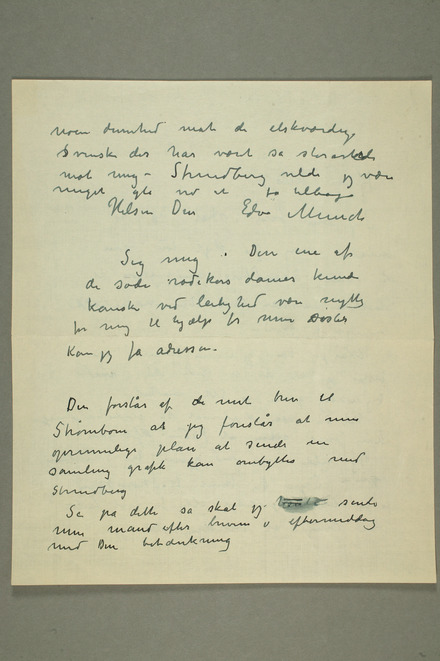 noen dumhed mod de elskværdige
Svenske der har vært så storartede
mod mig – Strindberg vilde jeg være
meget glad ved at få tilbage
Hilsen Din Edv Munch
Sig mig . Den ene af
de søde rødekors damer kunde
kanske ved leilighed være nyttig
for mig til hjælp for min søster
Kan jeg få adressen.
Du forstår af de mit brev til
Strømbom at jeg foreslår at min
oprinnelige plan at sende en
samling grafik kan ombyttes med
Strindberg
Se på dette så skal jeg sende
min mand efter brevene i eftermiddag
med Din betænkning